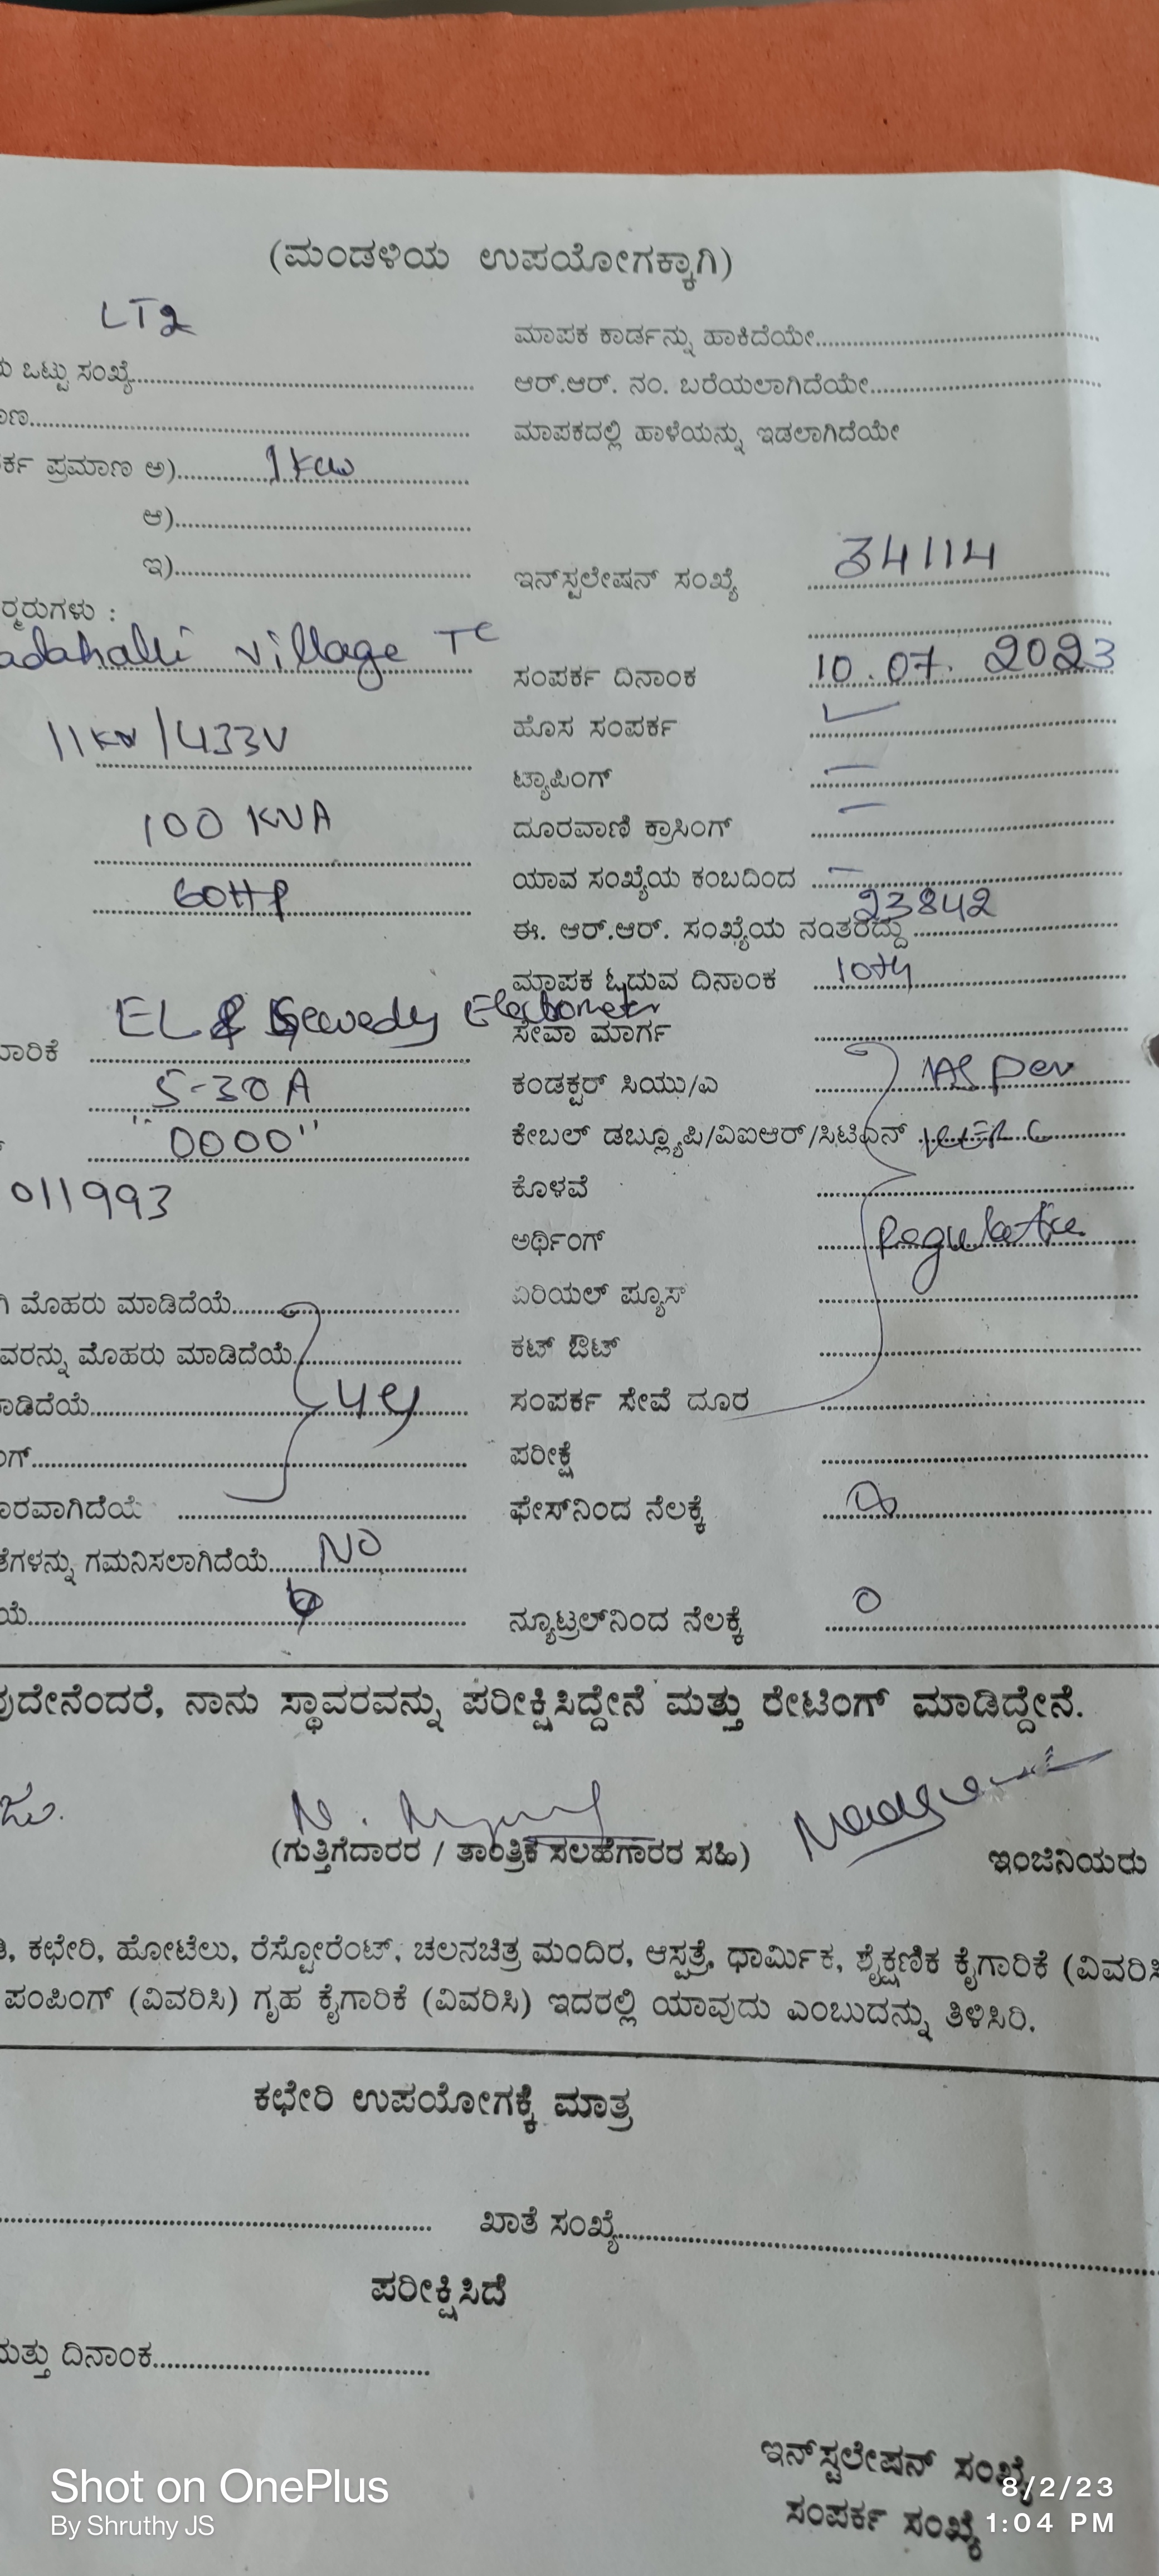 (ಮಂಡಳಿಯ ಉಪಯೋಗಕ್ಕಾಗಿ)
LT2
ಒಟ್ಟು ಸಂಖ್ಯೆ
ಪ್ರಮಾಣ ಅ) 1 KW
ಆ)
ಇ)
village TC
11KV/433V
100 KVA
60HP
Electrometer
5-30 A
"0000"
011993
ಮೊಹರು ಮಾಡಿದೆಯೆ
ಮೊಹರು ಮಾಡಿದೆಯೆ
ಗಮನಿಸಲಾಗಿದೆಯೆ NO
ಮಾಪಕ ಕಾರ್ಡನ್ನು ಹಾಕಿದೆಯೇ
ಆರ್.ಆರ್. ನಂ. ಬರೆಯಲಾಗಿದೆಯೇ
ಮಾಪಕದಲ್ಲಿ ಹಾಳೆಯನ್ನು ಇಡಲಾಗಿದೆಯೇ
ಇನ್‌ಸ್ಟಲೇಷನ್ ಸಂಖ್ಯೆ 34114
ಸಂಪರ್ಕ ದಿನಾಂಕ 10.07.2023
ಹೊಸ ಸಂಪರ್ಕ
ಟ್ಯಾಪಿಂಗ್
ದೂರವಾಣಿ ಕ್ರಾಸಿಂಗ್
ಯಾವ ಸಂಖ್ಯೆಯ ಕಂಬದಿಂದ
ಈ. ಆರ್.ಆರ್. ಸಂಖ್ಯೆಯ ನಂತರದ್ದು 23842
ಮಾಪಕ ಓದುವ ದಿನಾಂಕ 10th
ಸೇವಾ ಮಾರ್ಗ
ಕಂಡಕ್ಟರ್ ಸಿಯು/ಎ As per
ಕೇಬಲ್ ಡಬ್ಲ್ಯೂಪಿ/ವಿಐಆರ್/ಸಿಟಿಎನ್ KERC
ಕೊಳವೆ
ಅರ್ಥಿಂಗ್
ಏರಿಯಲ್ ಪ್ಯೂಸ್
ಕಟ್ ಔಟ್
ಸಂಪರ್ಕ ಸೇವೆ ದೂರ
ಪರೀಕ್ಷೆ
ಫೇಸ್‌ನಿಂದ ನೆಲಕ್ಕೆ
ನ್ಯೂಟ್ರಲ್‌ನಿಂದ ನೆಲಕ್ಕೆ 0
ನಾನು ಸ್ಥಾವರವನ್ನು ಪರೀಕ್ಷಿಸಿದ್ದೇನೆ ಮತ್ತು ರೇಟಿಂಗ್ ಮಾಡಿದ್ದೇನೆ.
(ಗುತ್ತಿಗೆದಾರರ / ತಾಂತ್ರಿಕ ಸಲಹೆಗಾರರ ಸಹಿ)
ಇಂಜಿನಿಯರು
ಕಛೇರಿ, ಹೋಟೆಲು, ರೆಸ್ಟೋರೆಂಟ್, ಚಲನಚಿತ್ರ ಮಂದಿರ, ಆಸ್ಪತ್ರೆ, ಧಾರ್ಮಿಕ, ಶೈಕ್ಷಣಿಕ ಕೈಗಾರಿಕೆ
ಪಂಪಿಂಗ್ (ವಿವರಿಸಿ) ಗೃಹ ಕೈಗಾರಿಕೆ (ವಿವರಿಸಿ) ಇದರಲ್ಲಿ ಯಾವುದು ಎಂಬುದನ್ನು ತಿಳಿಸಿರಿ.
ಕಛೇರಿ ಉಪಯೋಗಕ್ಕೆ ಮಾತ್ರ
ಖಾತೆ ಸಂಖ್ಯೆ
ಪರೀಕ್ಷಿಸಿದೆ
ದಿನಾಂಕ
ಇನ್‌ಸ್ಟಲೇಷನ್ ಸಂಖ್ಯೆ
ಸಂಪರ್ಕ ಸಂಖ್ಯೆ
Shot on OnePlus
By Shruthy JS
8/2/23
1:04 PM